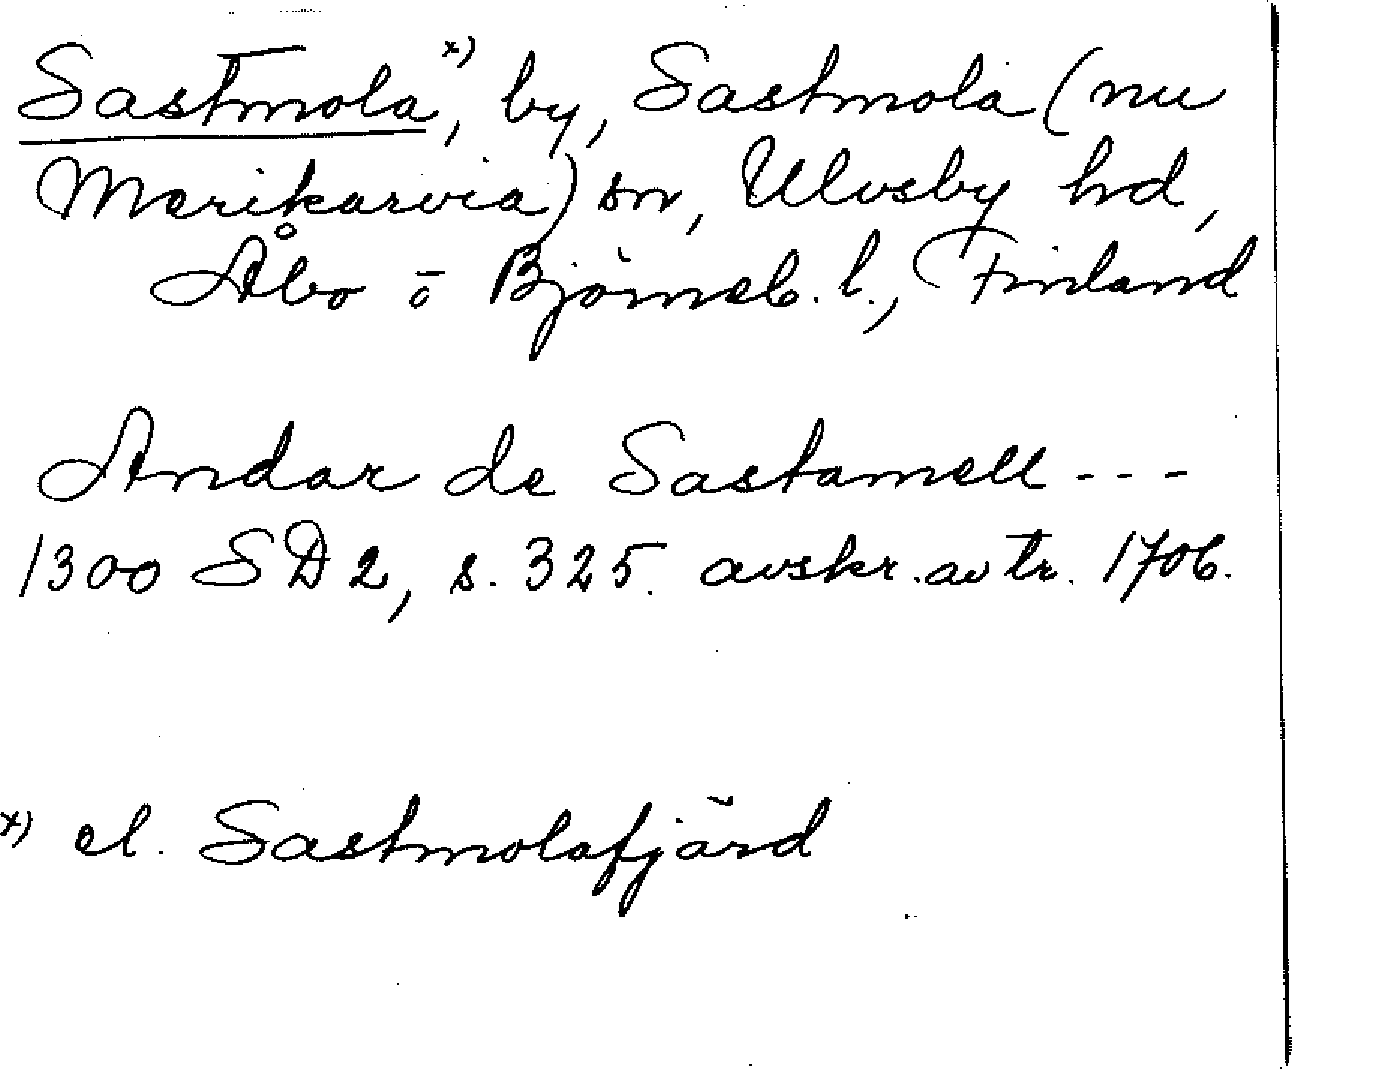 Sastmola x), by, Sastmola (nu
Merikarvia) sn, Ulvsby hd,
Åbo o Björneb. l., Finland
Andar de Sastamell - - -
1300 SD 2, s. 325. avskr. av tr. 1706.
x) el. Sastmolafjärd